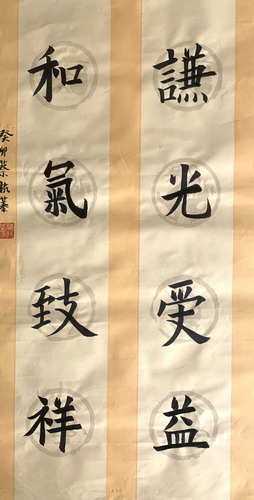 謙光受益
和氣致祥
癸卯